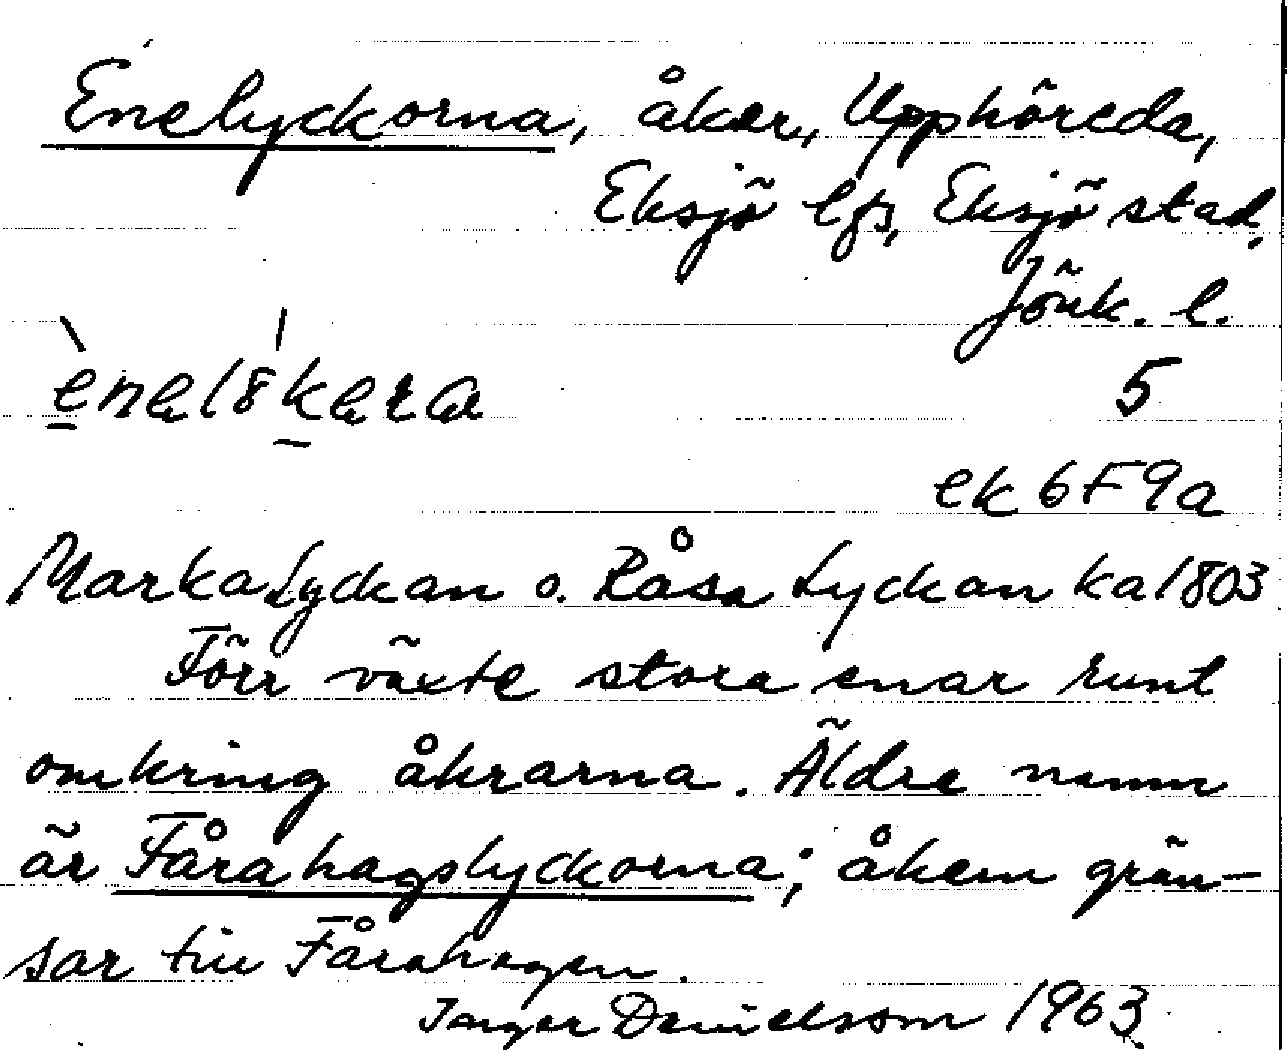 Enelyckorna, åker, Upphöreda,
Eksjö lfs, Eksjö stad,
Jönk. l.
ènel8́kera
5
ek 6F9a
Marka Lyckan o. Råsa Lyckan ka 1803
Förr växte stora enar runt
omkring åkrarna. Äldre namn
är Fårahagslyckorna; åkern grän-
sar till Fårahagen.
Inger Danielsson 1963